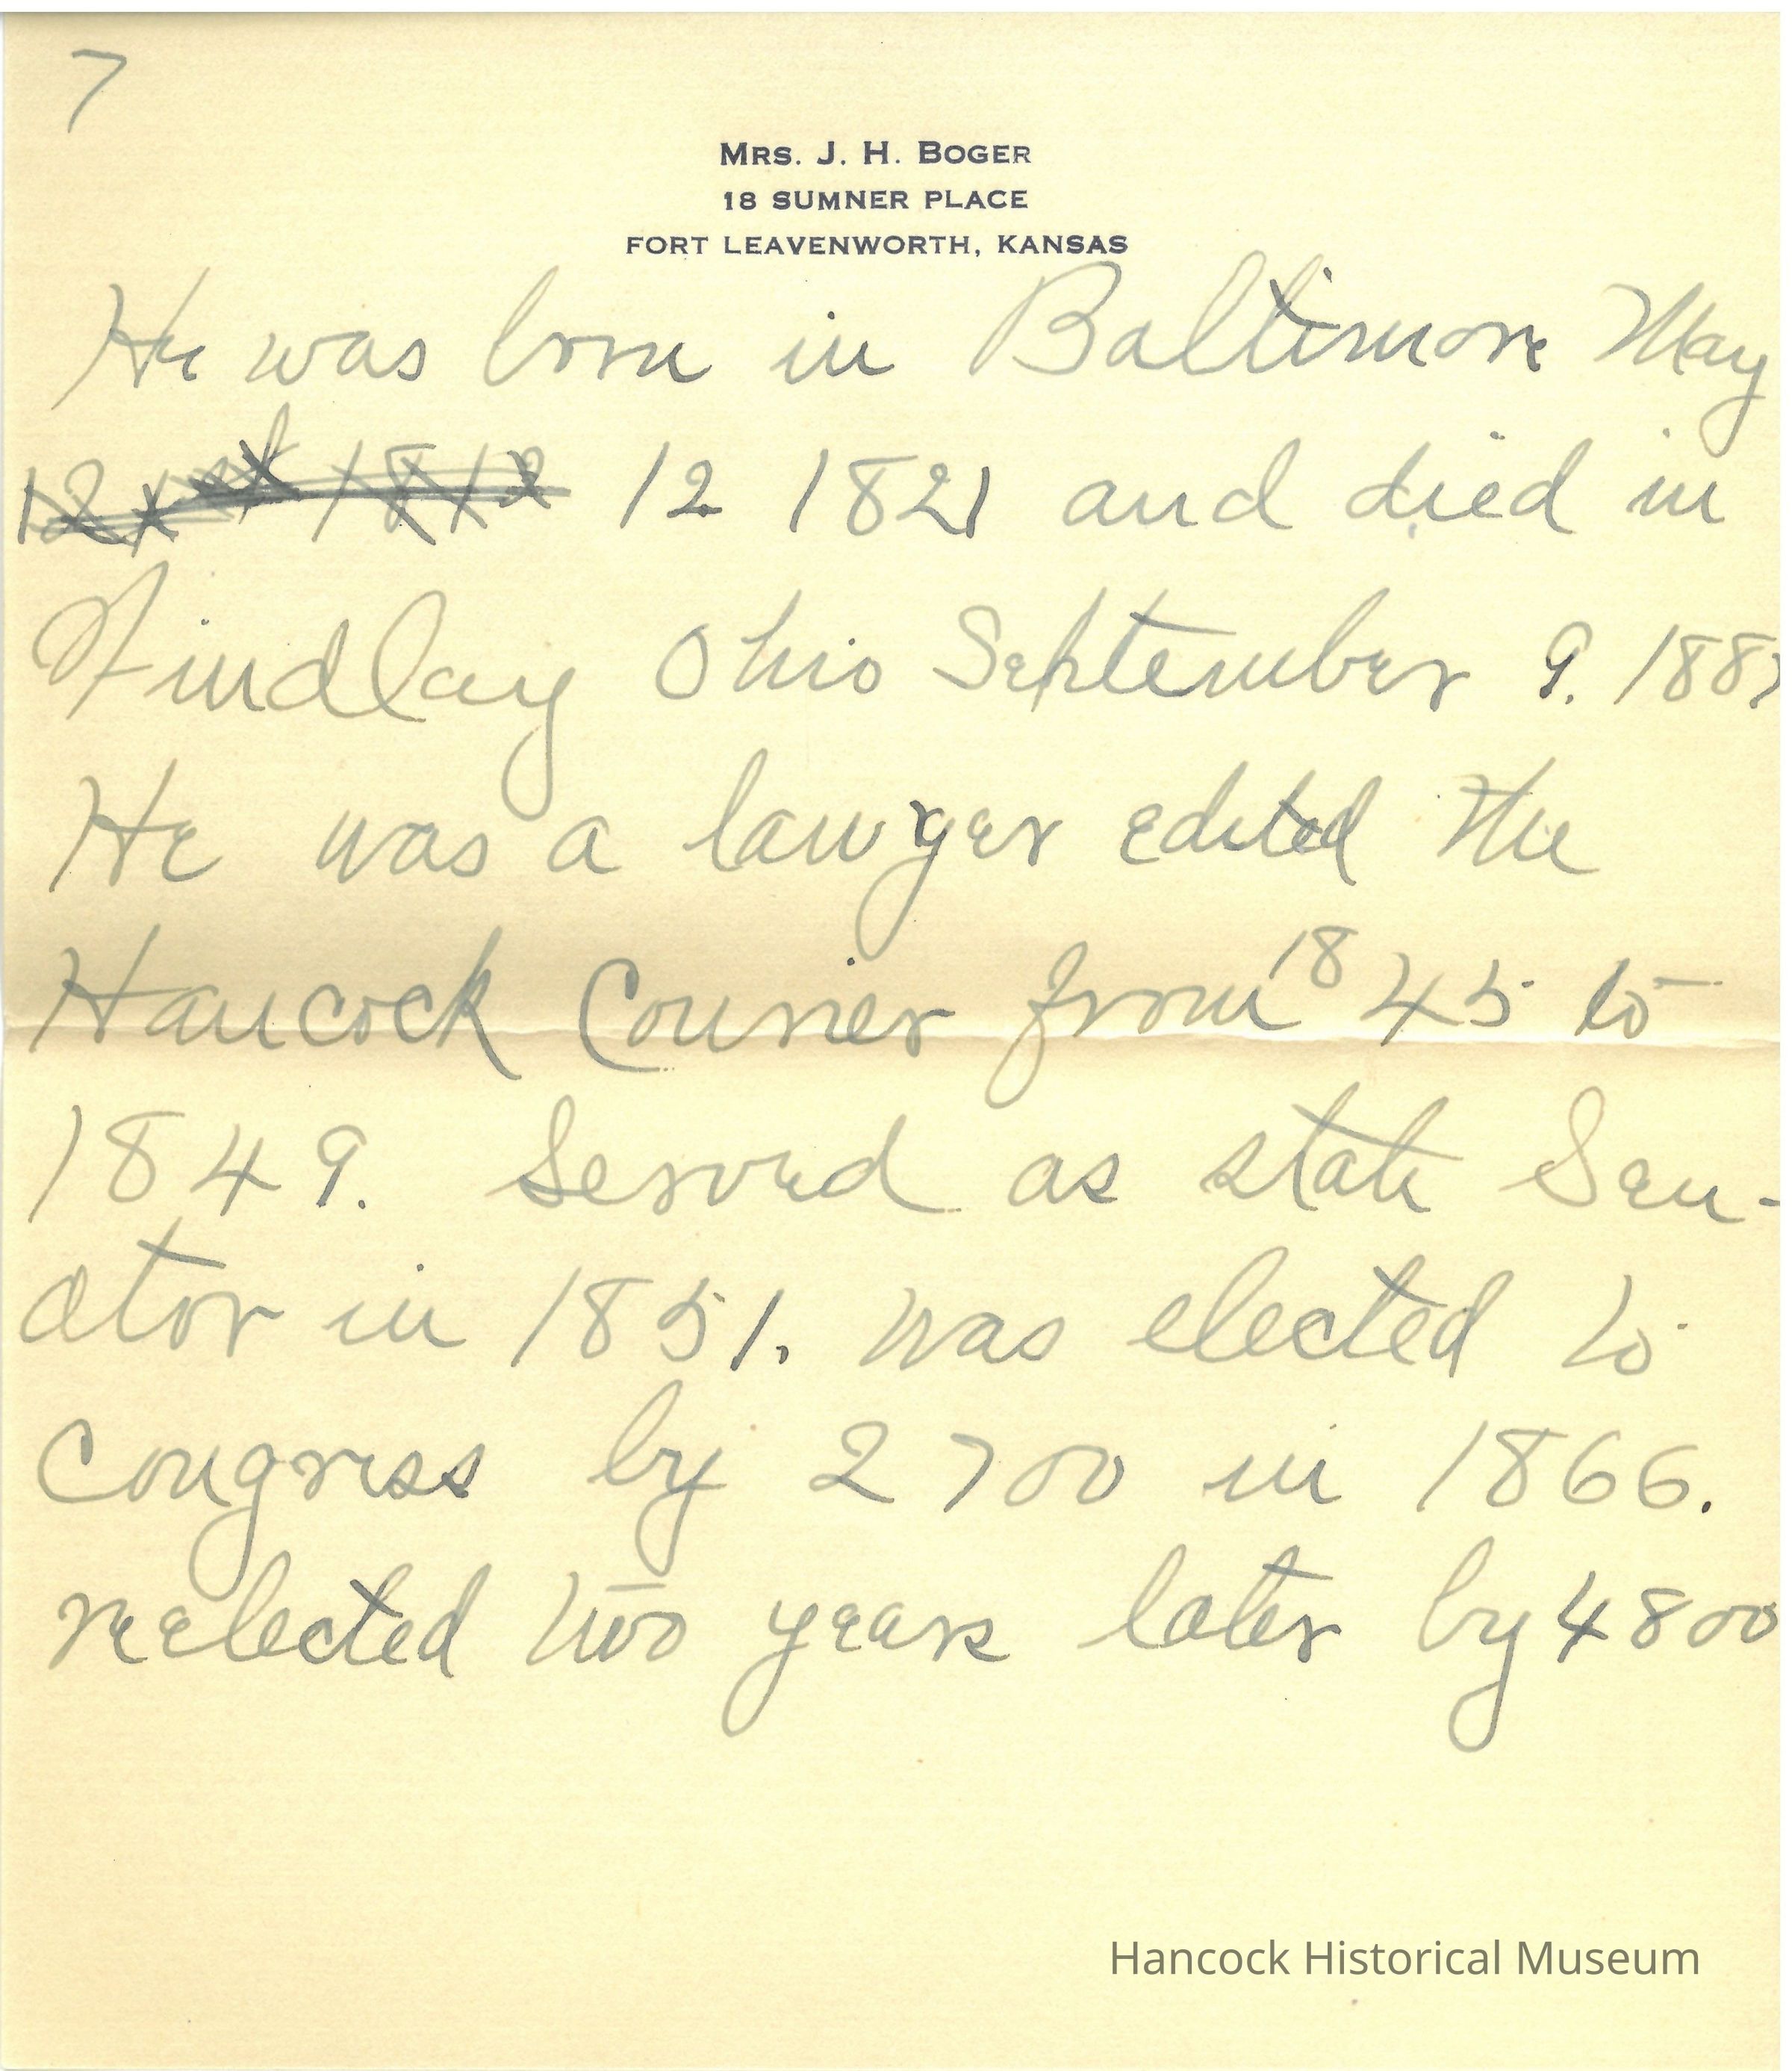 7
MRS. J. H. BOGER
18 SUMNER PLACE
FORT LEAVENWORTH, KANSAS
He was born in Baltimore May
12 1821 and died in
Findlay Ohio September 9. 1887
He was a lawyer edited the
Hancock Courier from 1845 to
1849. Served as state Sen-
ator in 1851. was elected to
Congress by 2700 in 1866.
reelected two years later by 4800
Hancock Historical Museum